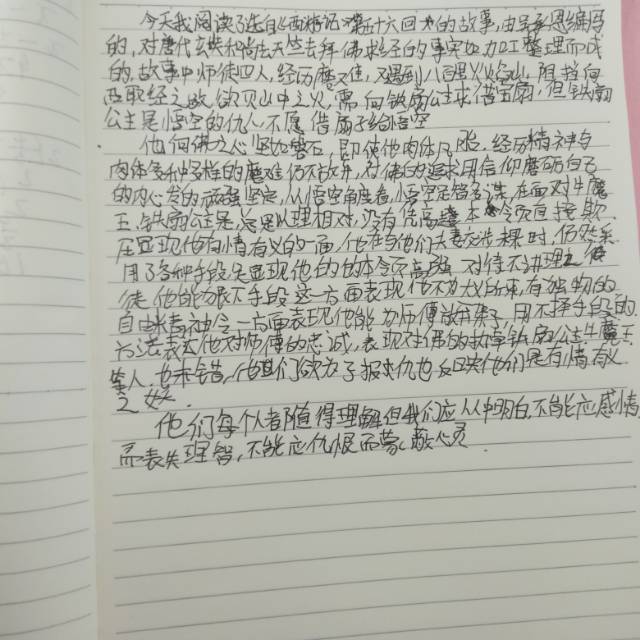 今天我阅读了选自《西游记》第五十六回的故事,由吴承恩编写
的,对唐代玄奘和尚去天竺去拜佛求经的事实加工整理而成
的,故事中师徒四人,经历磨难,又遇到八百里火焰山,阻挡向
西取经之路,欲灭山中之火,需向铁扇公主求借宝扇,但铁扇
公主是悟空的仇人不愿借扇子给悟空
他向佛之心坚如磐石,即使他肉体凡胎,经历精神与
肉体多种多样的磨难仍不放弃,对佛的追求用信仰磨砺自己
的内心发的顽强坚定,从悟空角度看,悟空足智多谋,在面对牛魔
王,铁扇公主是,总是以理相对,仍有高强本领直接欺
压显现他有情有义的一面,他在与他们夫妻交涉无果时,仍然采
用了各种手段足显现他的本领高强 对待不讲理之
徒他能够不择手段 这一方面表现他不为世所束,有独特的
自由精神令一方面表现他能为师傅 用不择手段的
方法表达他对师傅的忠诚,表现对佛的敬掌铁扇公主牛魔王
等人,也未错,他们欲为子报仇也反映他们是有情有义
之妖
他们每个人都值得理解但我们应从中明白,不能应感情
而丧失理智,不能应仇恨而蒙蔽心灵